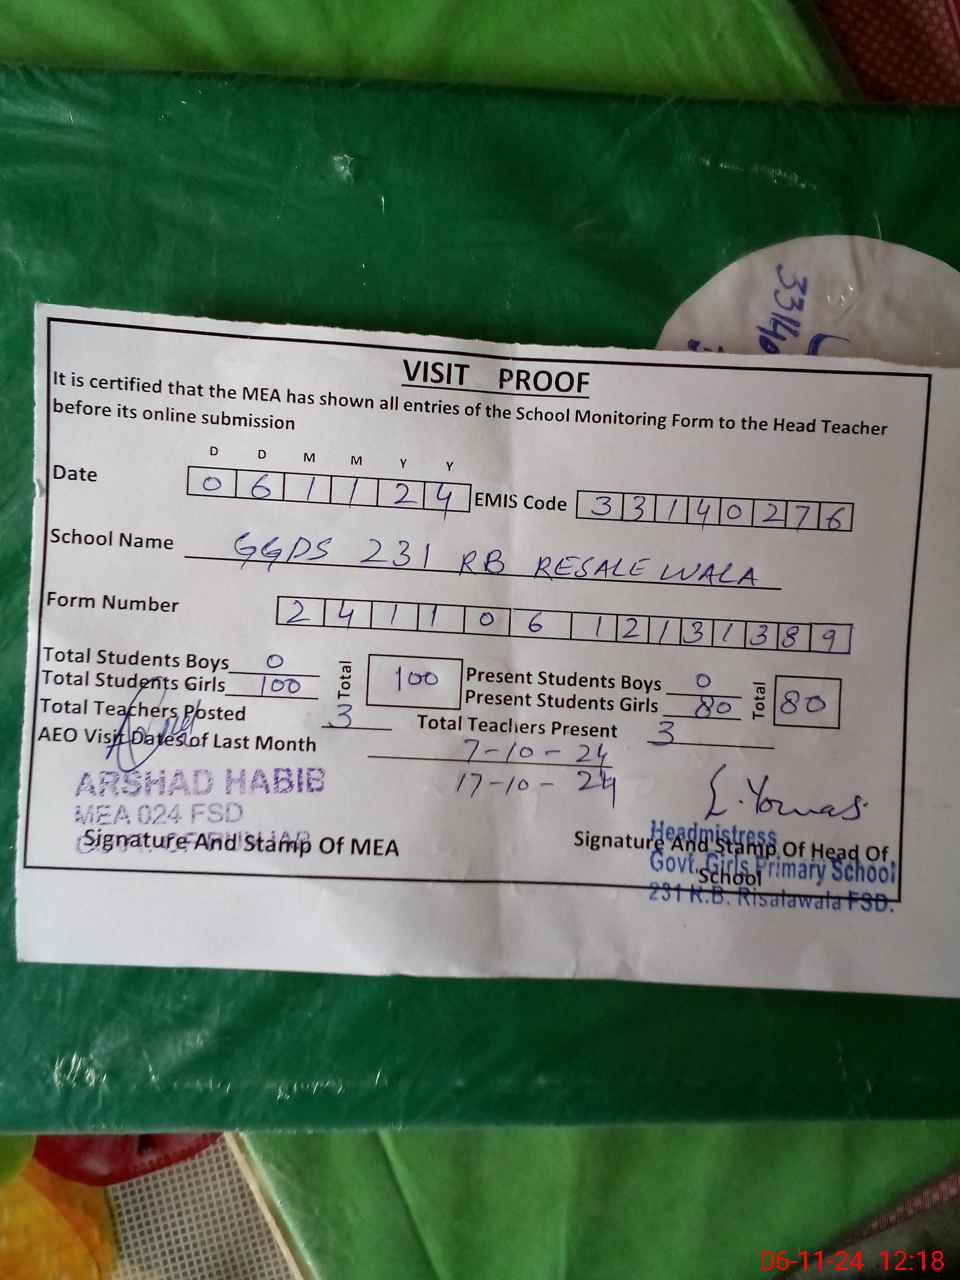 33140
VISIT PROOF
It is certified that the MEA has shown all entries of the School Monitoring Form to the Head Teacher
before its online submission
D D M M Y Y
Date 0 6 1 1 2 4 EMIS Code 3 3 1 4 0 2 7 6
School Name GGPS 231 RB RESALEWALA
Form Number 2 4 1 1 0 6 1 2 1 3 1 3 8 9
Total Students Boys 0 Total 100 Present Students Boys 0 Total 80
Total Students Girls 100 Present Students Girls 80
Total Teachers Posted 3 Total Teachers Present 3
AEO Visit Dates of Last Month 7-10-24
17-10-24
ARSHAD HABIB
MEA 024 FSD
Signature And Stamp Of MEA
Headmistress
Signature And Stamp Of Head Of
School
Govt. Girls Primary School
231 R.B. Risalawala FSD.
06-11-24 12:18